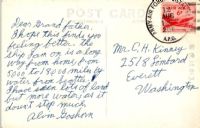 POST CARD
Dear Grand father:
I hope this finds you
feeling better. the
ship I am on is a long
way from home, from
5000 to 9000 miles by
water from Seattle
I have seen lots of land
but more water, as it
dount stop much
Alvin Goshorn
Mr. C. H. Kinney
2518 Lombard
Everett
Washington